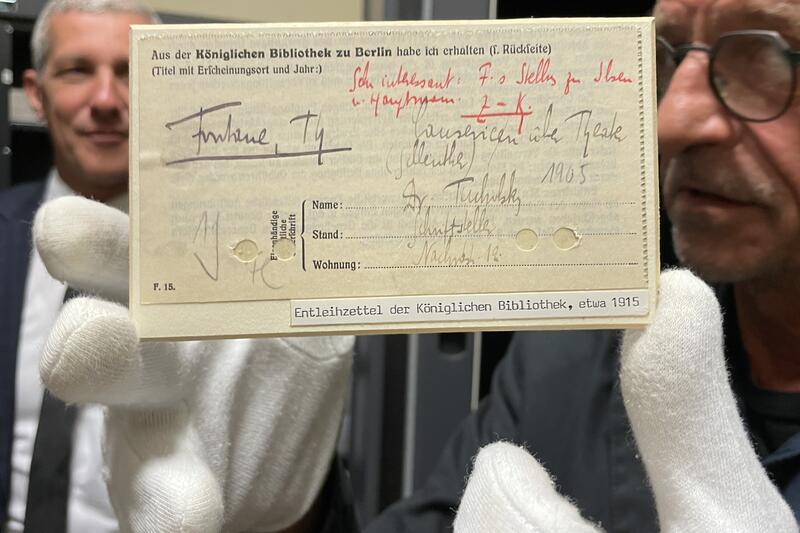 Aus der Königlichen Bibliothek zu Berlin habe ich erhalten (s. Rückseite)
(Titel mit Erscheinungsort und Jahr:)
Sehr interessant: F.s Stellg zu Ibsen
u. Hauptmann. Z – K.
Fontane, Th
Causerien über Theater
1905
Name: Dr. Tucholsky
Stand: Schriftsteller
Wohnung: Nachodstr. 12.
F. 15.
Entleihzettel der Königlichen Bibliothek, etwa 1915